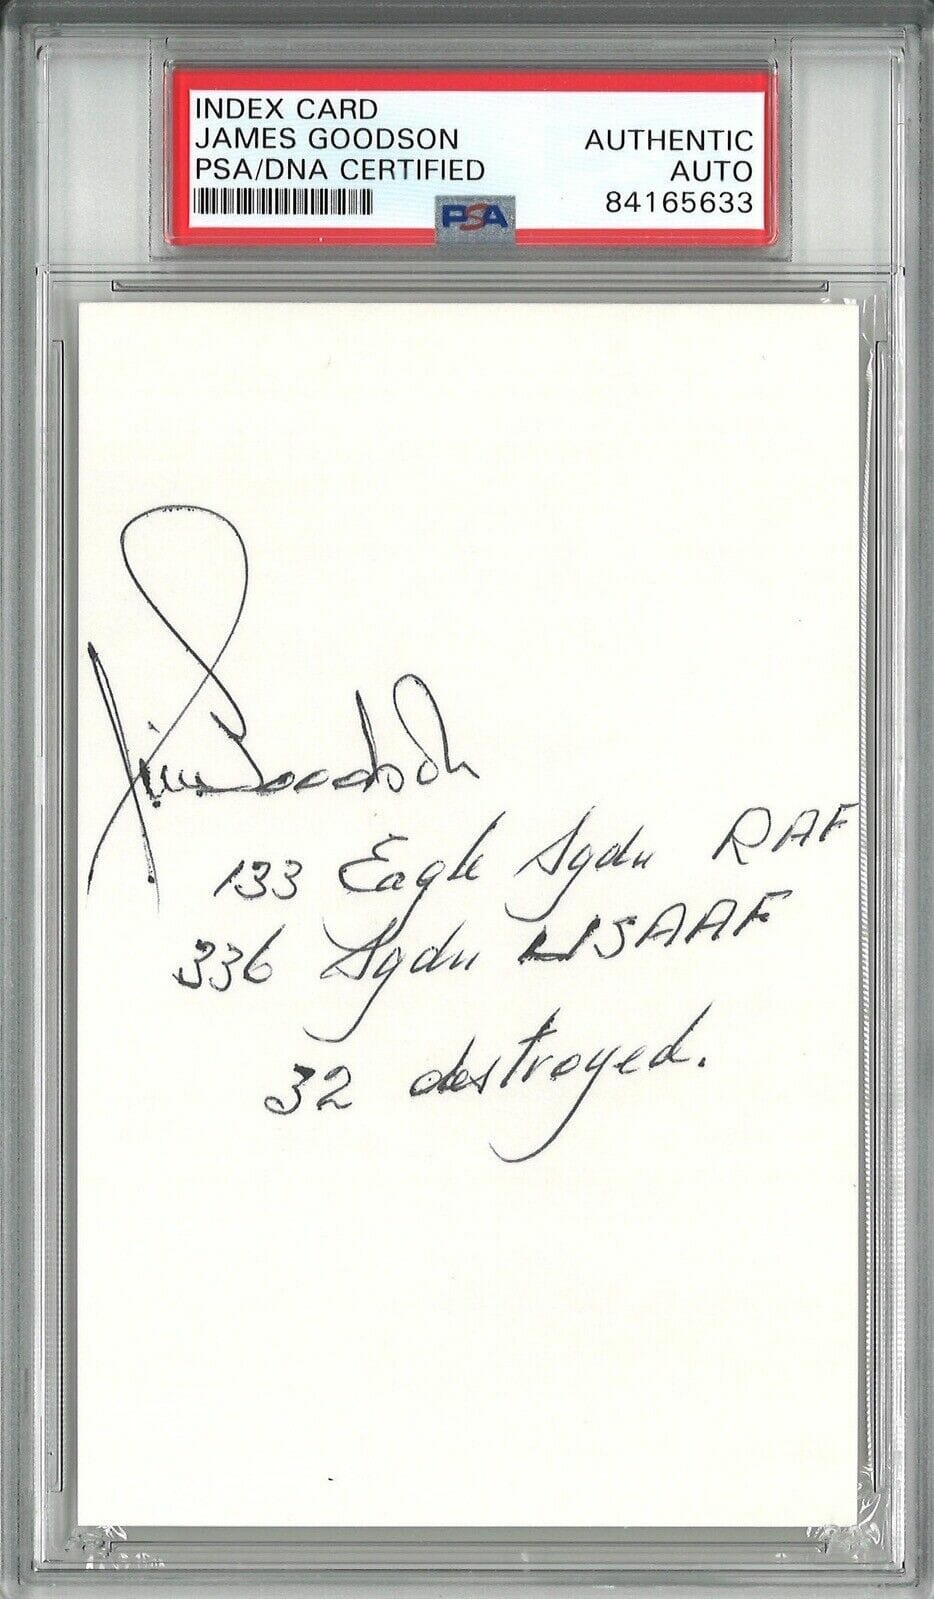 INDEX CARD
JAMES GOODSON AUTHENTIC
PSA/DNA CERTIFIED AUTO
PSA 84165633
Jim Goodson
133 Eagle Sqdn RAF
336 Sqdn USAAF
32 destroyed.